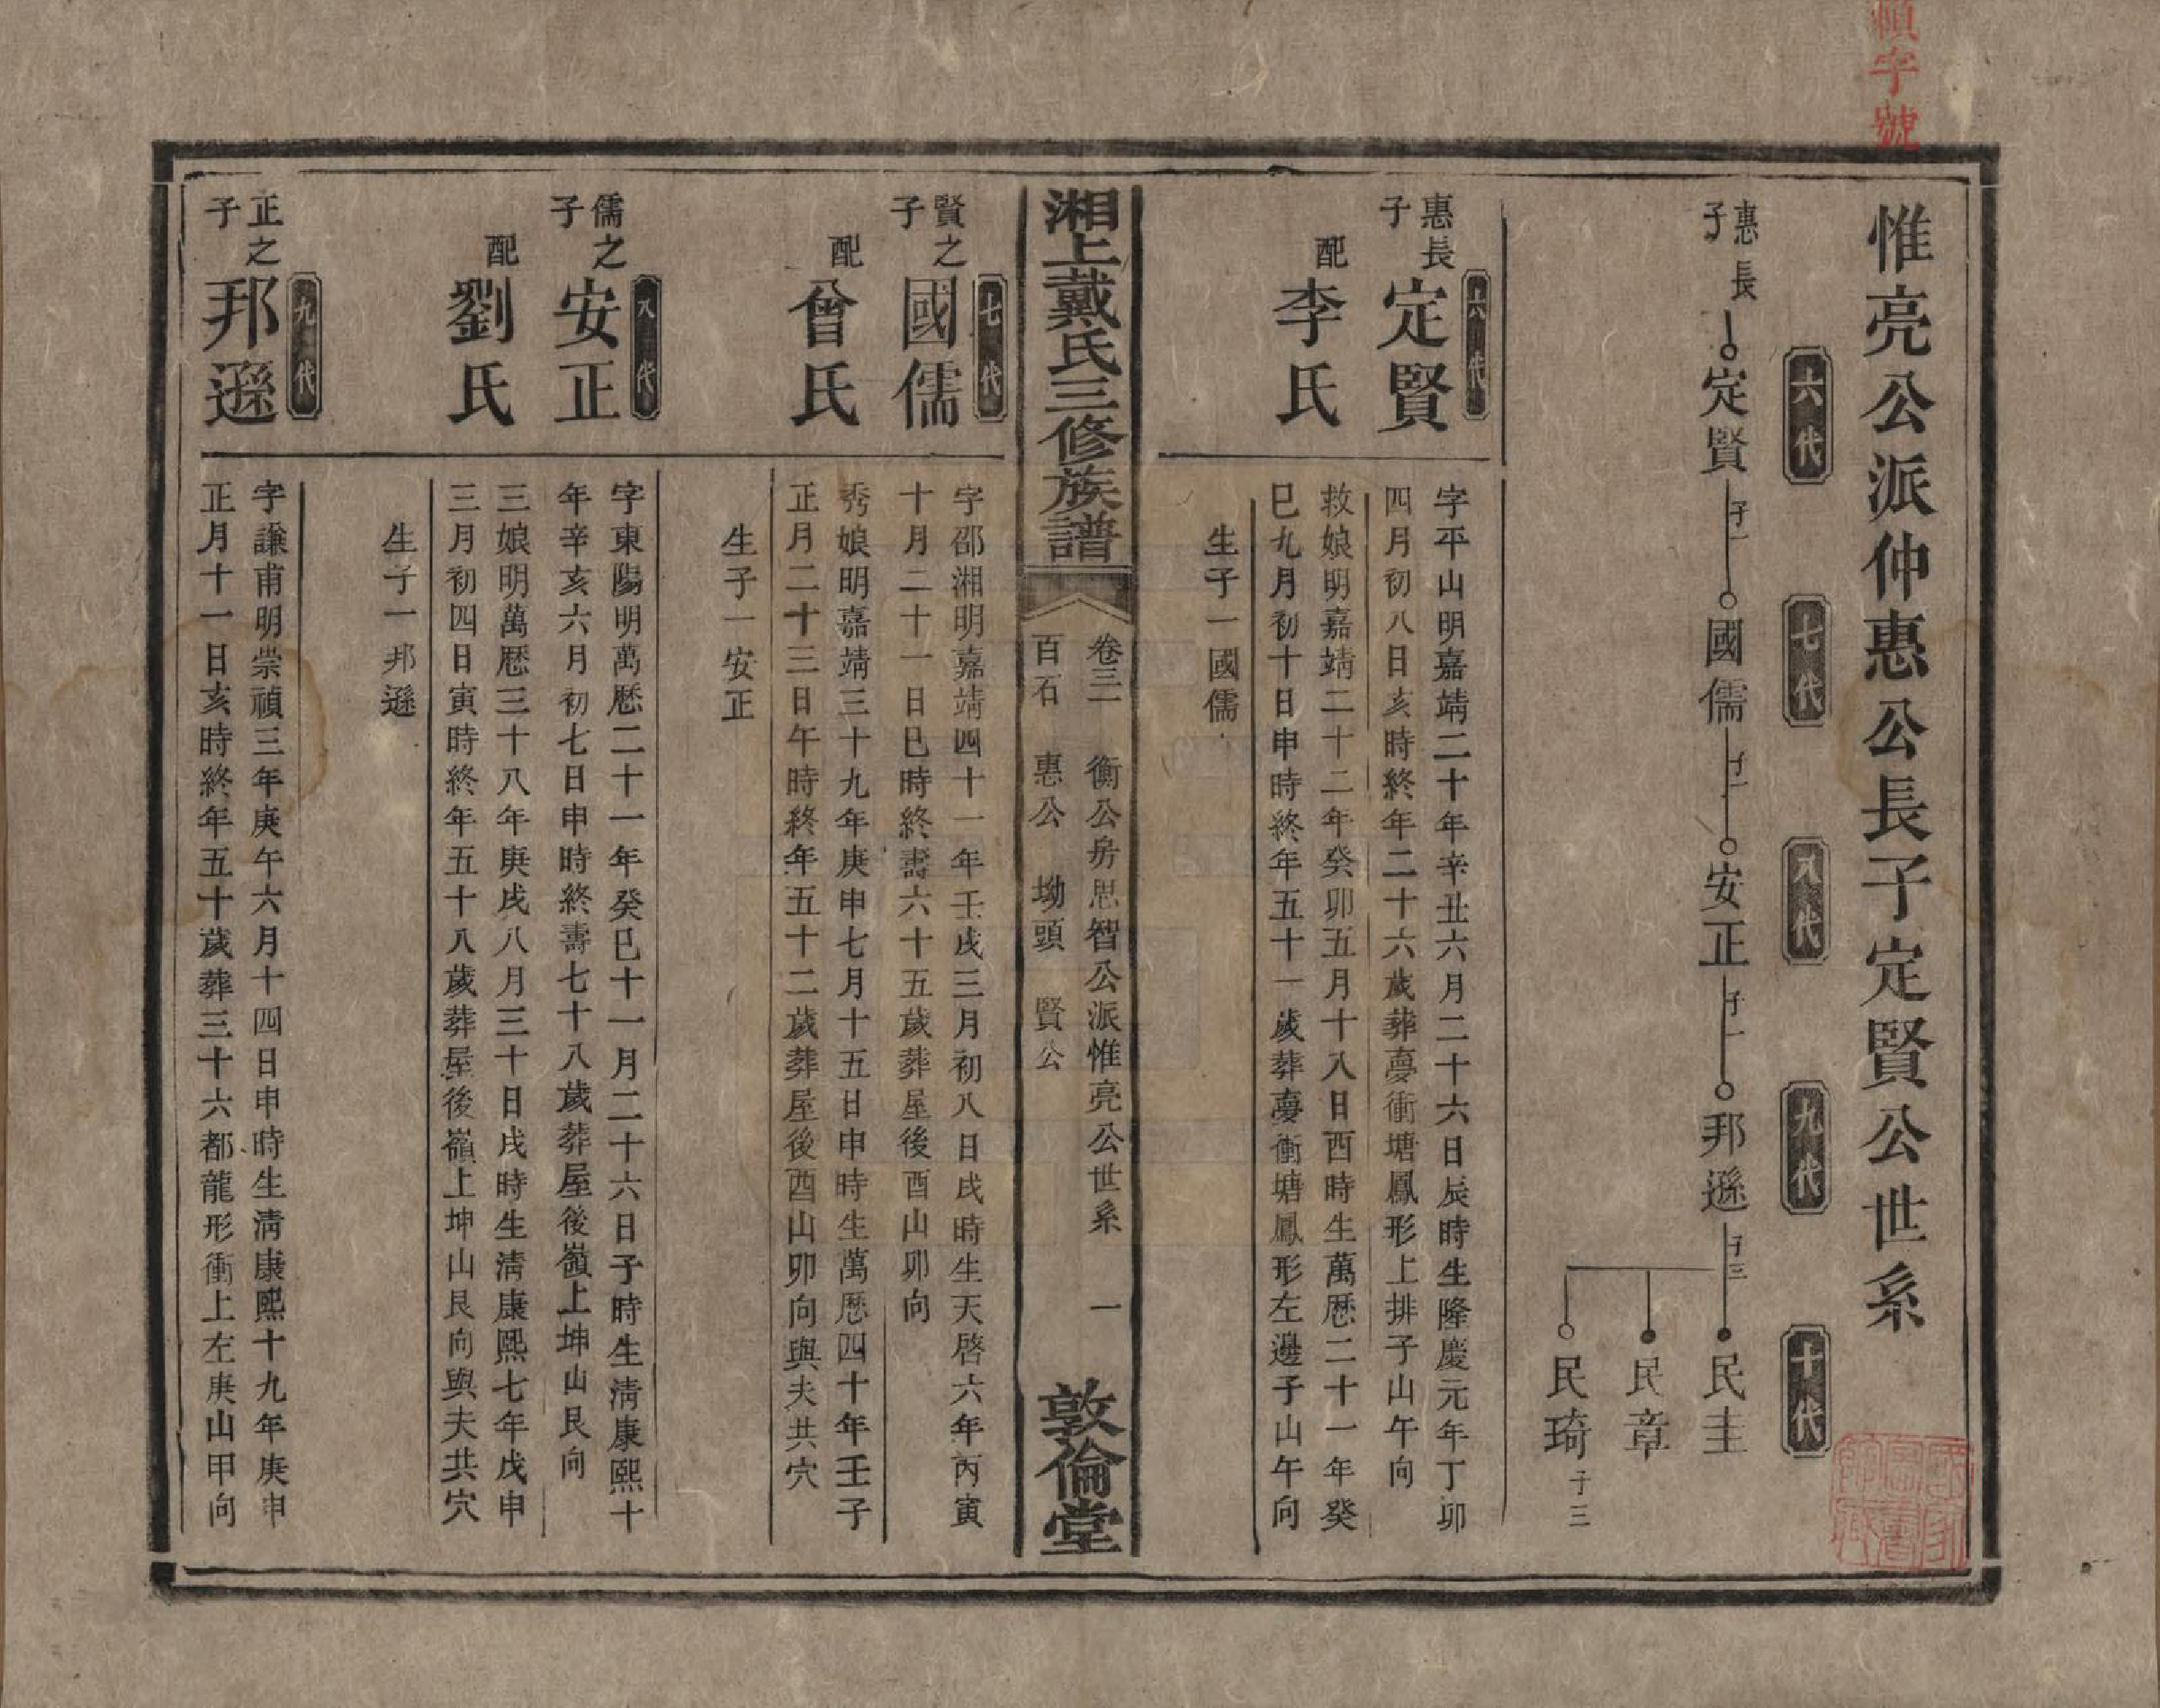 惟亮公派仲惠公長子定賢公世系
六代
七代
八代
九代
十代
惠長子
定賢
子一
國儒
子一
安正
子一
邦遜
子三
民圭
民章
民琦
子三
六代
惠長子
定賢
字平山明嘉靖二十年辛丑六月二十六日辰時生隆慶元年丁卯
四月初八日亥時終年二十六歲葬㝱衝塘鳳形上排子山午向
配
李氏
救娘明嘉靖二十二年癸卯五月十八日酉時生萬歷二十一年癸
巳九月初十日申時終年五十一歲葬㝱衝塘鳳形左邊子山午向
生子一國儒
湘上戴氏三修族譜
卷三二 衡公房思智公派惟亮公世系 一
百石 惠公 坳頭 賢公
敦倫堂
七代
賢之子
國儒
字邵湘明嘉靖四十一年壬戌三月初八日戌時生天啓六年丙寅
十月二十一日巳時終壽六十五歲葬屋後酉山卯向
配
曾氏
秀娘明嘉靖三十九年庚申七月十五日申時生萬歷四十年壬子
正月二十三日午時終年五十二歲葬屋後酉山卯向與夫共穴
生子一安正
八代
儒之子
安正
字東陽明萬歷二十一年癸巳十一月二十六日子時生淸康熙十
年辛亥六月初七日申時終壽七十八歲葬屋後嶺上坤山艮向
配
劉氏
三娘明萬歷三十八年庚戌八月三十日戌時生淸康熙七年戊申
三月初四日寅時終年五十八歲葬屋後嶺上坤山艮向與夫共穴
生子一邦遜
九代
正之子
邦遜
字謙甫明崇禎三年庚午六月十四日申時生淸康熙十九年庚申
正月十一日亥時終年五十歲葬三十六都龍形衝上左庚山甲向
字號